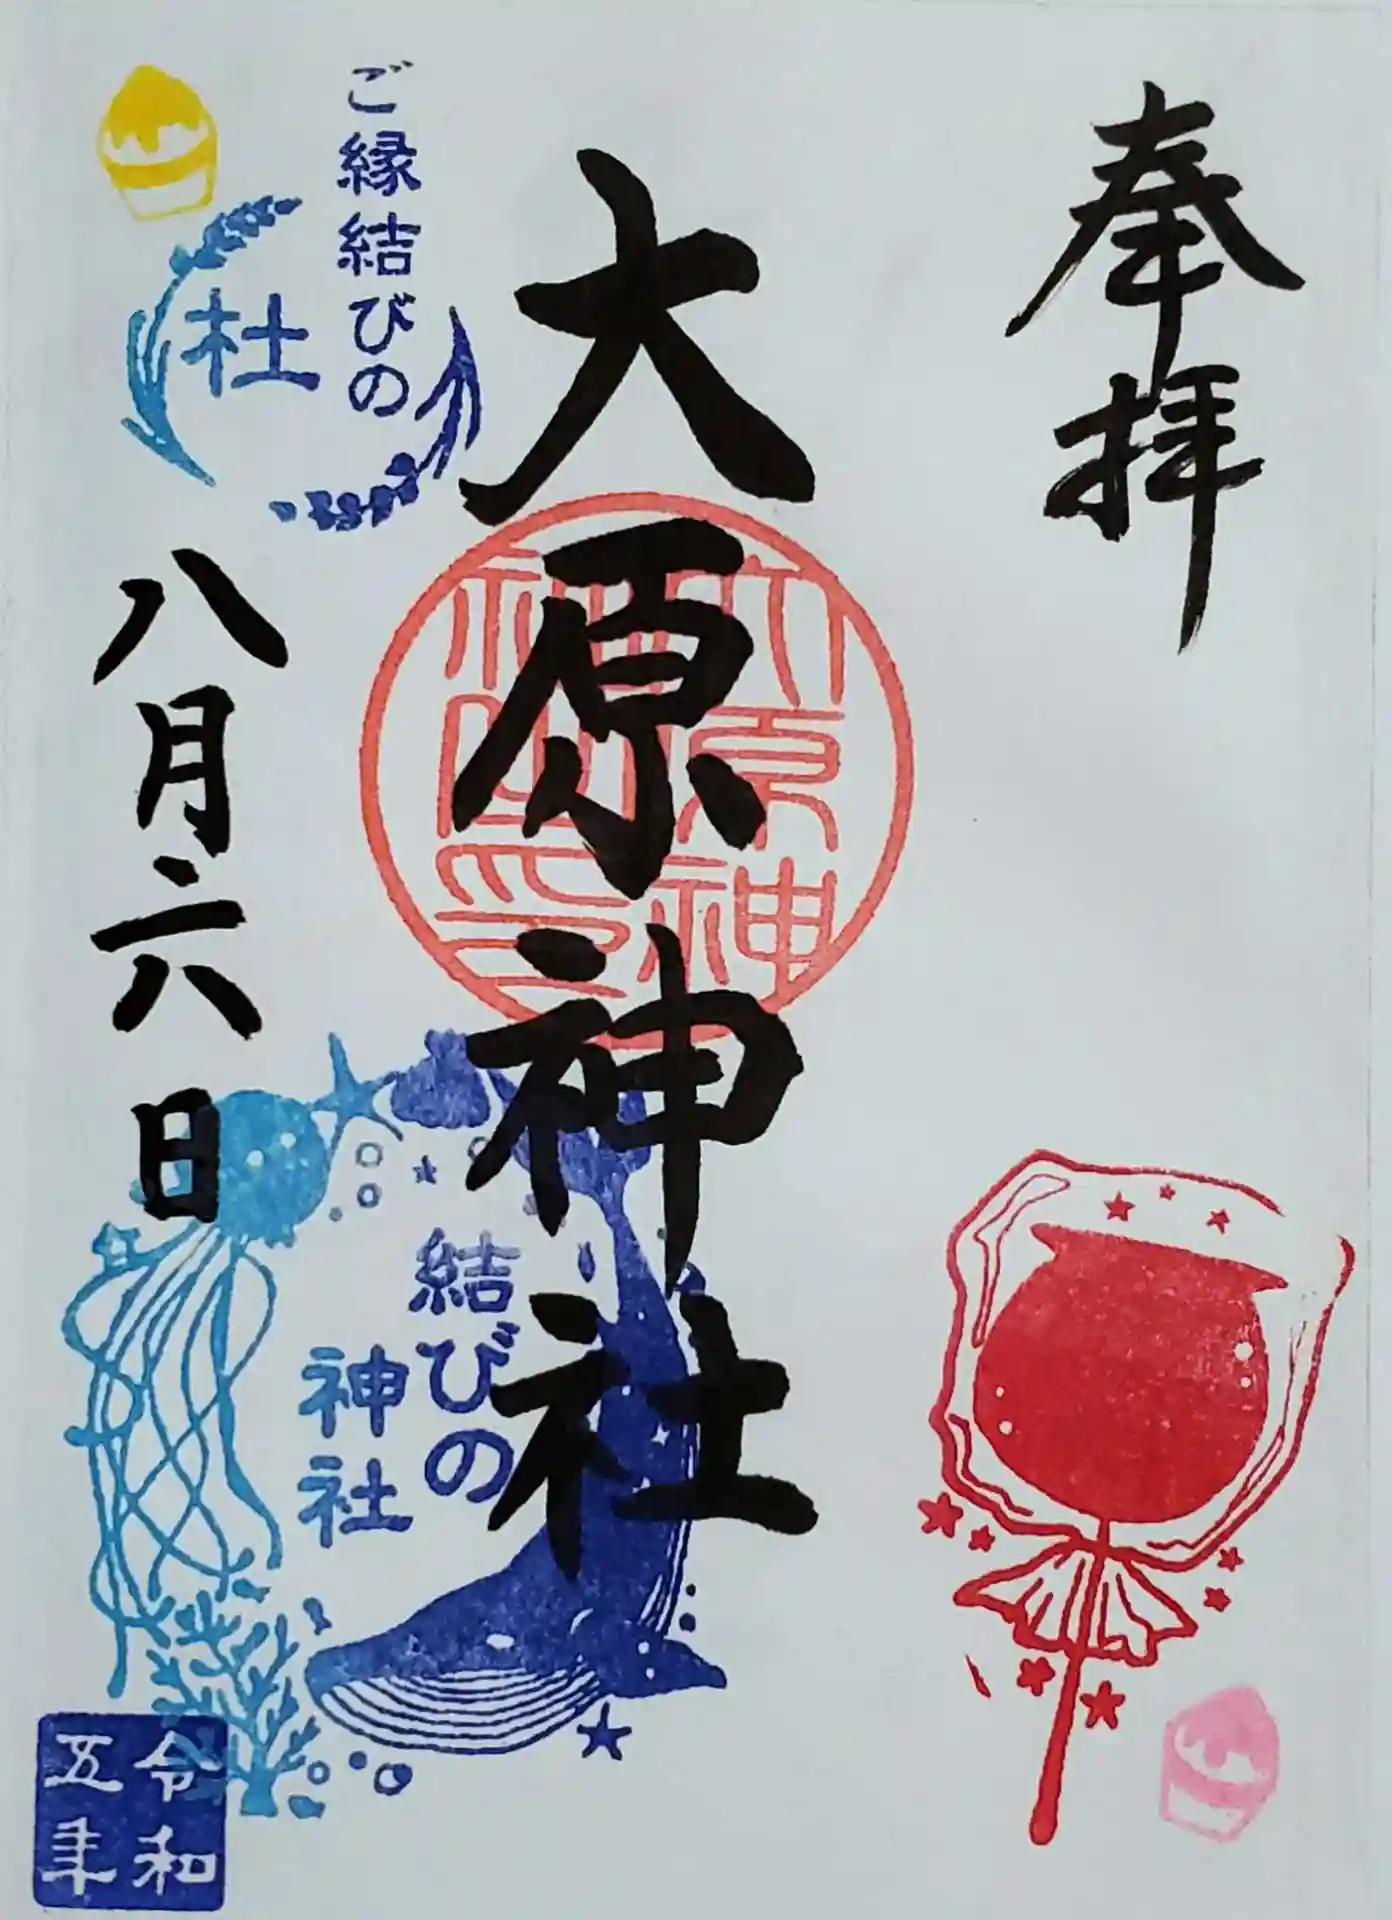 奉拝
大原神社
大原神社之印
ご縁結びの
杜
八月六日
結びの
神社
令和
五年